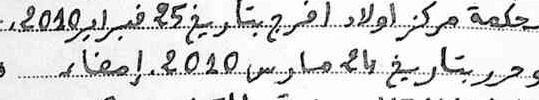 حكمة مركز أولاد افرج بتاريخ 25 فبراير 2010.
وحرر بتاريخ 24 مارس 2010. إمضاء